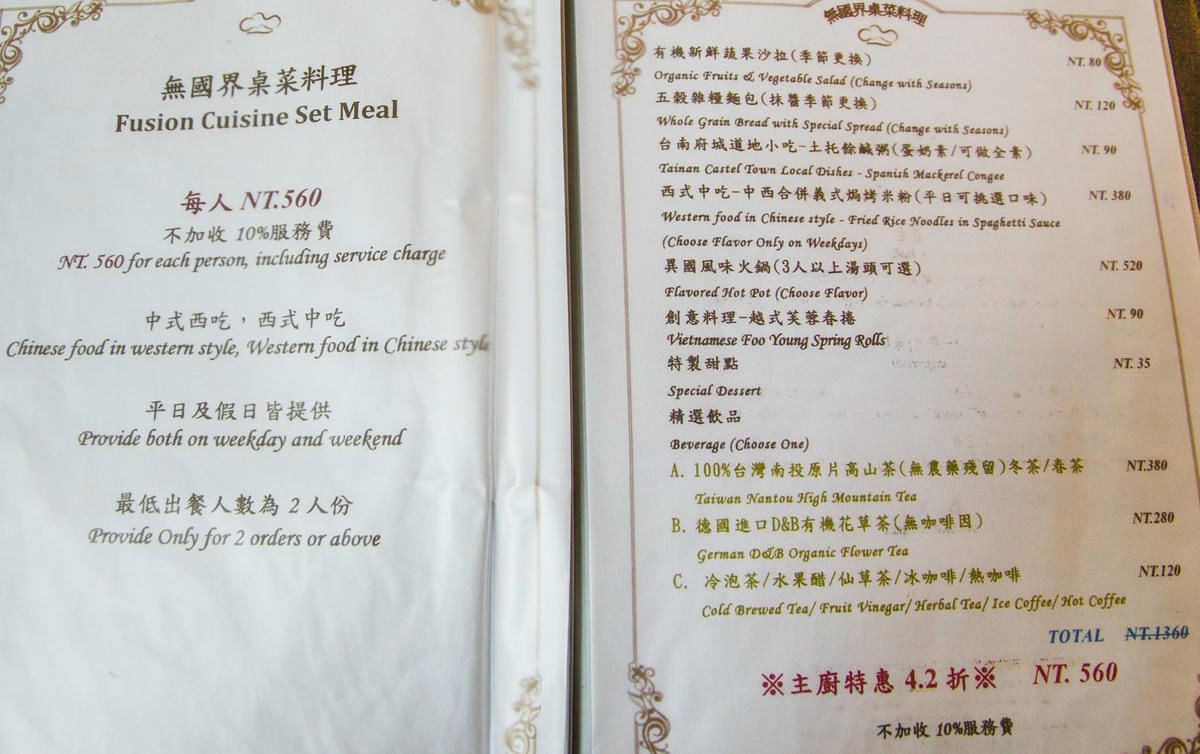 無國界桌菜料理
Fusion Cuisine Set Meal
每人 NT.560
不加收 10%服務費
NT. 560 for each person, including service charge
中式西吃，西式中吃
Chinese food in western style, Western food in Chinese style
平日及假日皆提供
Provide both on weekday and weekend
最低出餐人數為 2 人份
Provide Only for 2 orders or above
無國界桌菜料理
有機新鮮蔬果沙拉(季節更換) NT. 80
Organic Fruits & Vegetable Salad (Change with Seasons)
五穀雜糧麵包(抹醬季節更換) NT. 120
Whole Grain Bread with Special Spread (Change with Seasons)
台南府城道地小吃-土托餘鹹粥(蛋奶素/可做全素) NT. 90
Tainan Castel Town Local Dishes - Spanish Mackerel Congee
西式中吃-中西合併義式焗烤米粉(平日可挑選口味) NT. 380
Western food in Chinese style - Fried Rice Noodles in Spaghetti Sauce
(Choose Flavor Only on Weekdays)
異國風味火鍋(3人以上湯頭可選) NT. 520
Flavored Hot Pot (Choose Flavor)
創意料理-越式芙蓉春捲 NT. 90
Vietnamese Foo Young Spring Rolls
特製甜點 NT. 35
Special Dessert
精選飲品
Beverage (Choose One)
A. 100%台灣南投原片高山茶(無農藥殘留)冬茶/春茶 NT.380
Taiwan Nantou High Mountain Tea
B. 德國進口D&B有機花草茶(無咖啡因) NT.280
German D&B Organic Flower Tea
C. 冷泡茶/水果醋/仙草茶/冰咖啡/熱咖啡 NT.120
Cold Brewed Tea/ Fruit Vinegar/ Herbal Tea/ Ice Coffee/ Hot Coffee
TOTAL NT.1360
※主廚特惠 4.2 折※ NT. 560
不加收 10%服務費